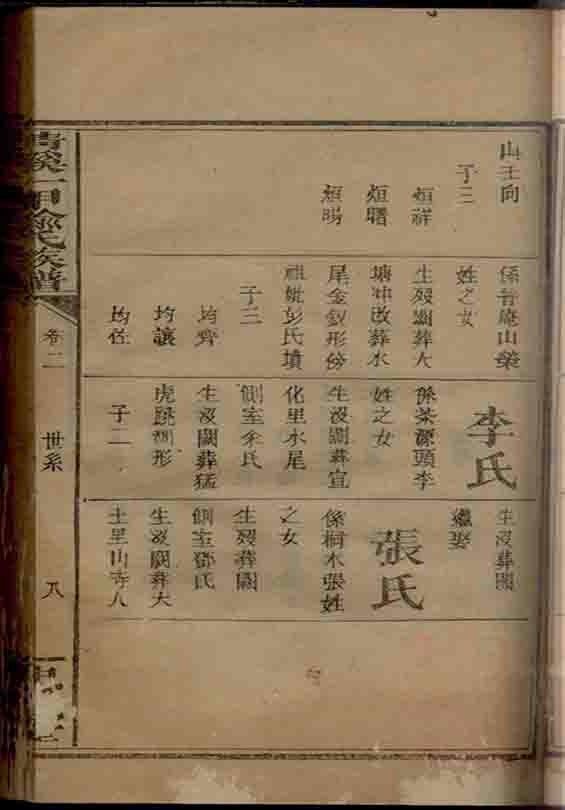 山壬向
子三
烜祥
烜曙
烜暘
係普庵山藥
姓之女
生歿闕葬大
塘沖改葬水
尾金釵形份
祖妣彭氏墳
子三
均齊
均讓
均佐
李氏
係茶源頭李
姓之女
生沒闕葬宣
化里水尾
側室余氏
生沒闕葬猛
虎跳澗形
子二
生沒葬闕
繼娶
張氏
係桐木張姓
之女
生歿葬闕
側室鄧氏
生沒闕葬大
土里山寺人
一甲 氏族譜
卷二
世系
八